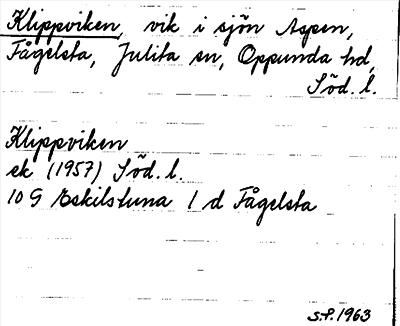 Klippviken, vik i sjön Aspen,
Fågelsta, Julita sn, Oppunda hd,
Söd. l.
Klippviken
ek (1957) Söd. l.
10 G Eskilstuna 1 d Fågelsta
S.P. 1963